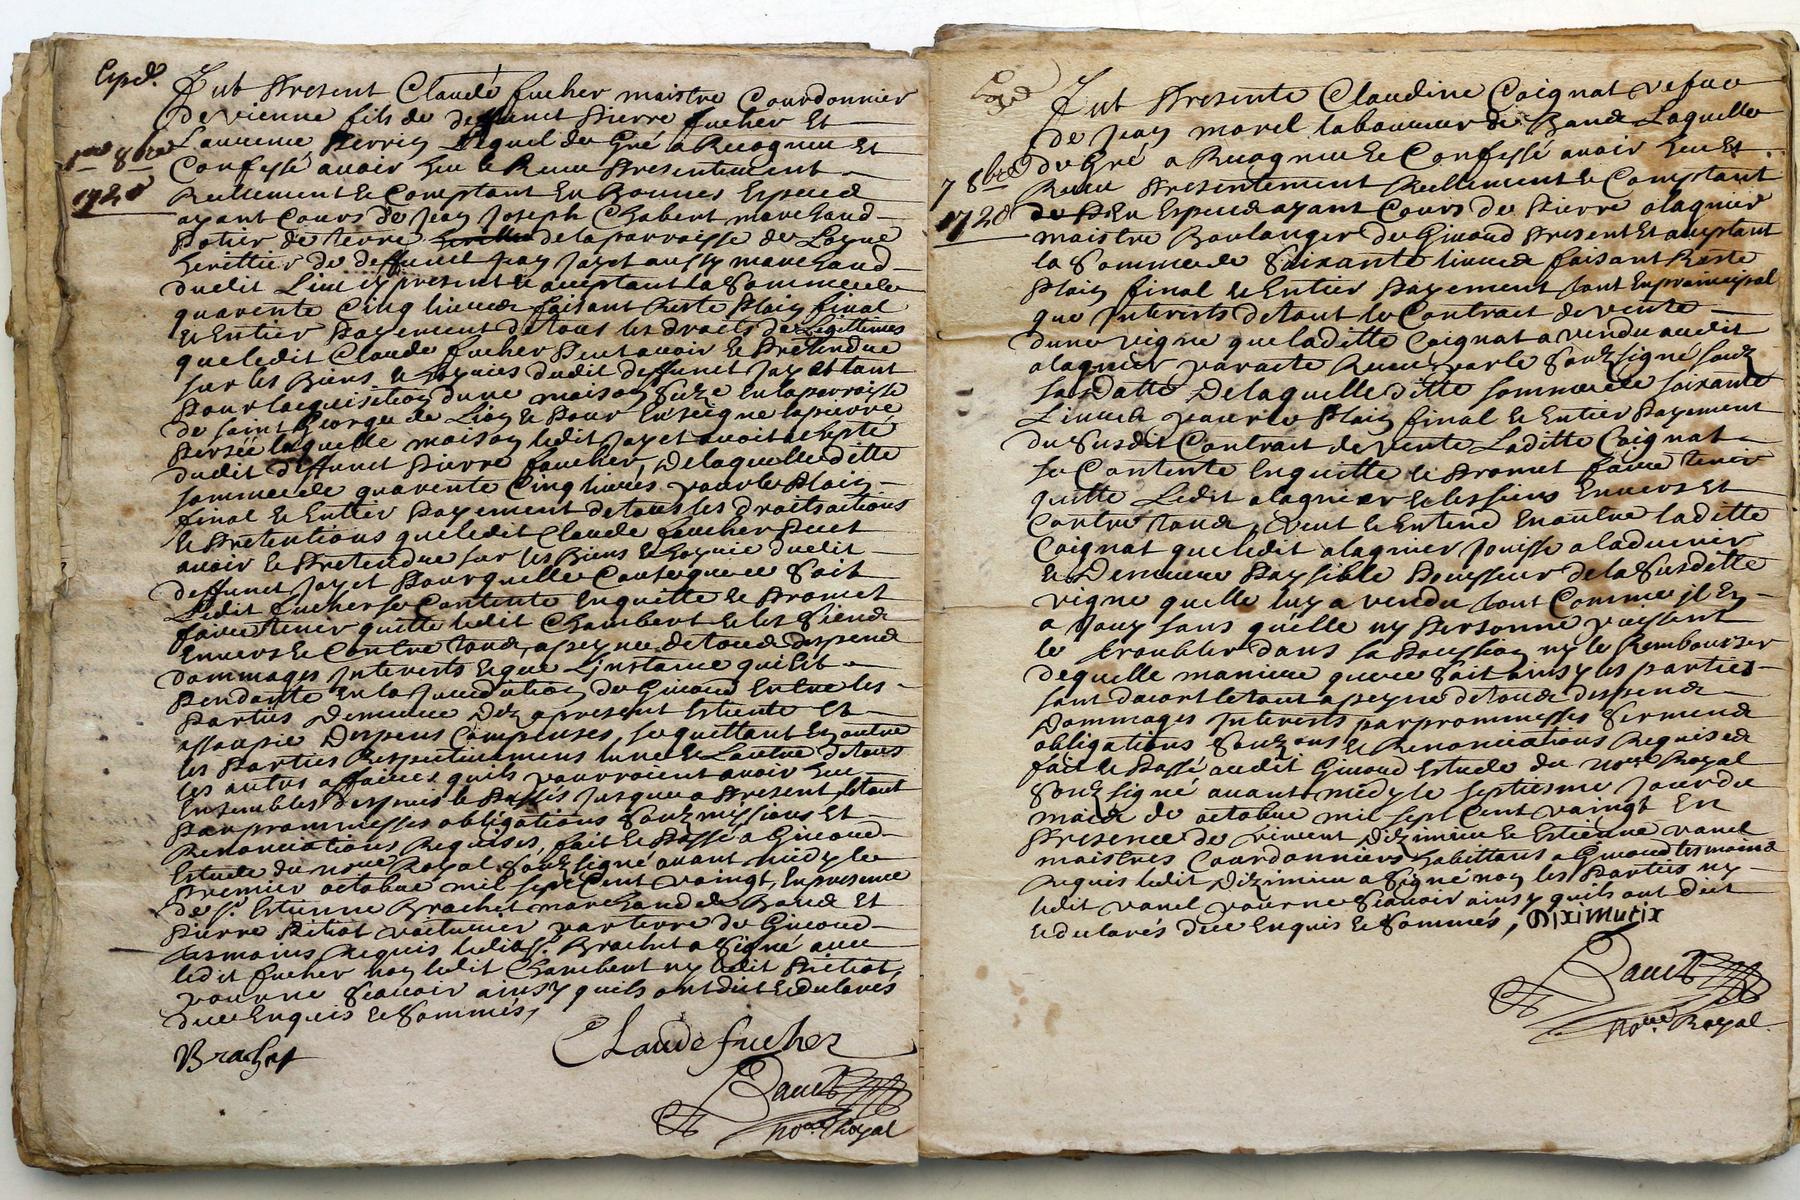 Expd.
1er 8bre
1720
Fut Present Claude fucher maistre Courdonnier
de vienne fils de deffunct Pierre fucher Et
Laurence Perrin Lequel de Gré a Recogneu Et
Confessé avoir heu & Receu Presentement
Reellement & Comptant En Bonnes Especes
ayant Cours de Jean Joseph Chabert marchand
Potier de terre de la parroisse de
herittier de deffunct Jean Jayet aussy marchand
dudit Lieu icy present & acceptant la Somme de
quarente Cinq livres faisant Reste Plain final
& Entier Payement de tous les droits de Legittimes
que ledit Claude fucher Peut avoir & Pretendre
sur les Biens & hoyries dudit deffunct Jayet tant
Pour lacquisition dune maison Size En la parroisse
de saint George de Lion & Pour Enseigne la pierre
Persée laquelle maison ledit Jayet avoit acepté
dudit deffunct Pierre foucher, De laquelle ditte
somme de quarente Cinq livres pour le Plain
final & Entier Payement de tous les droits actions
& Pretentions que ledit Claude foucher Peut
avoir & Pretendre sur les Biens & hoyrie dudit
deffunct Jayet Pour quelle Cause que ce Soit
Ledit fucher se Contente Enquitte & Promet
faire tenir quitte ledit Chambert & les Siens
Envers & Contre tous, a peyne de tous despens
Dommages Interests & que Linstance qui Est
Pendante En la Juridiction de Givord Entre les
Parties Demeure Dez a present Esteinte Et
assoupie Despens Compenses, se quittant En outre
les Parties Respectivement lune & Lautre de tous
les autres affaires quils pourroient avoir heu
Ensembles despuis le Passés Jusques a Present, & tout
Par prommesses obligations Soubzmissions Et
Renonciations Requises, fait & Passé a Givord
Estude du nore Royal Soubzsigné avant midy le
Premier octobre mil sept Cent vaingt, En presence
de sr. Estienne Brachet marchand de Et
Pierre Pitiot voiturier par terre de Givord
tesmoins Requis ledit sr. Brachet a Signé avec
ledit fucher non ledit Chambert ny ledit Pitiot
pour ne Scavoir ainsy quils ont dit & declarés
de ce Enquis & Sommés,
Brachet
Claude fucher
nore. Royal
Expd
7 8bre
1720
Fut Presente Claudine Coignat vefve
de Jean morel laboureur de Laquelle
de Gré a Recogneu & Confessé avoir heu Et
Receu Presentement Reellement & Comptant
En Especes ayant Cours de Pierre alagnier
maistre Boulanger de Givord Present Et acceptant
la Somme de Soixante livres faisant Reste
Plain final & Entier Payement tant En principal
que Interests de tout le Contrat de vente
dune vigne que laditte Coignat a vendu audit
alagnier par acte Receu par le Soubzsigné soubz
sa Datte De laquelle ditte somme de soixante
Livres pour le Plain final & Entier Payement
du Susdit Contrat de vente Laditte Coignat
se Contente Enquitte & Promet faire tenir
quitte Ledit alagnier & les siens Envers Et
Contre tous, veut & Entend En outre laditte
Coignat que ledit alagnier Jouisse a ladvenir
& Demeure Paysible Possesseur de la Susditte
vigne quelle luy a vendu tout Comme il En
a Jouy sans quelle ny Personne puissent
le troubler dans sa Possession ny le Rembourser
de quelle maniere que ce Soit ainsy les parties
sont dacort & tout a peyne de tous despens
Dommages Interests par prommesses Serments
obligations Soubzmons & Renonciations Requises
fait & Passé audit Givord Estude du nore Royal
Soubzsigné avant midy le septiesme Jour du
mois de octobre mil sept Cent vaingt En
Presence de vincent Diximieu & Estienne vanel
maistres Courdonniers habittans a Givord tesmoins
Requis ledit Diximieu a Signé non les Parties ny
ledit vanel pour ne Scavoir ainsy quils ont dict
& declarés de ce Enquis & Sommés,
nore. Royal.